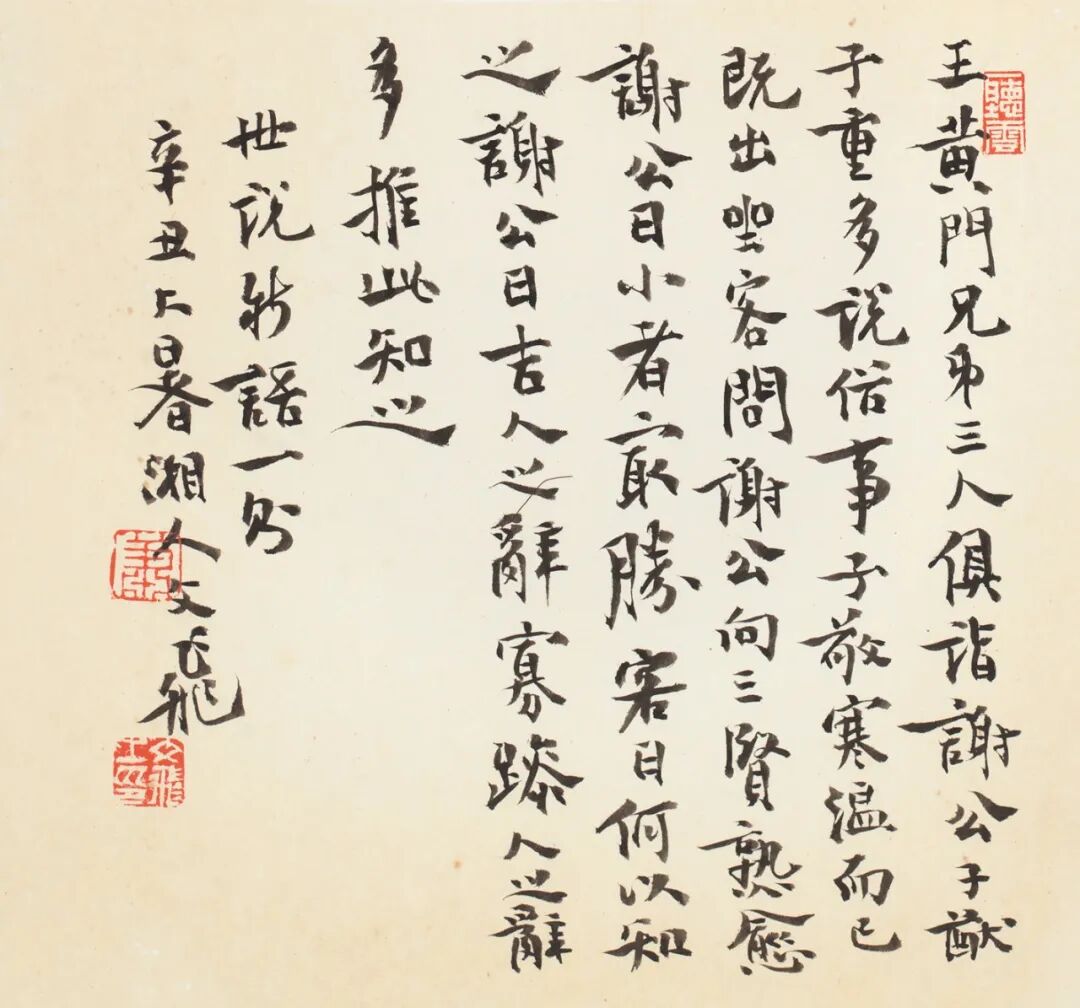 聽雲
王黄門兄弟三人俱詣謝公子猷
子重多说俗事子敬寒温而已
既出坐客問谢公向三賢熟愈
謝公曰小者最勝客曰何以知
之謝公曰吉人之辭寡躁人之辭
多推此知之
世说新語一则
辛丑大暑湘人文飛